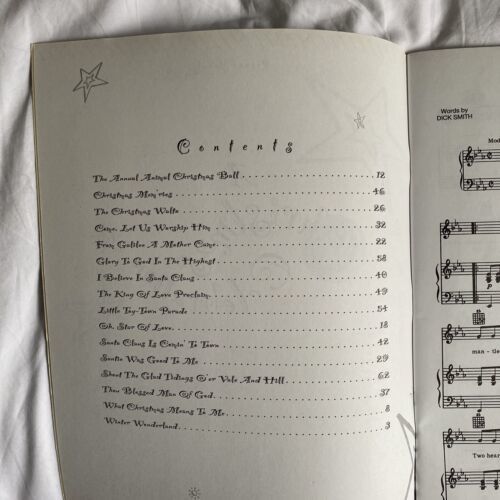 Contents
The Annual Animal Christmas Ball 12
Christmas Mem'ries 46
The Christmas Waltz 26
Come, Let Us Worship Him 32
From Galilee A Mother Came 22
Glory To God In The Highest 58
I Believe In Santa Claus 40
The King Of Love Proclaim 49
Little Toy-Town Parade 54
Oh, Star Of Love 18
Santa Claus Is Comin' To Town 42
Santa Was Good To Me 29
Shout The Glad Tidings O'er Vale And Hill 62
Thou Blessed Man Of God 37
What Christmas Means To Me 8
Winter Wonderland 3
Words by
DICK SMITH
Mod
p
man - tle
Two hear